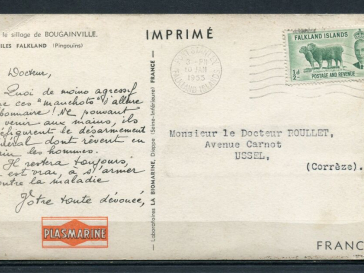 le sillage de BOUGAINVILLE.
ILES FALKLAND (Pingouins)
IMPRIMÉ
Docteur,
Quoi de moins agressif
que ces "manchots" d'allure
bonnaire! Ne pouvant
venir aux mains, ils
figurent le désarmement
dont rêvent en
les hommes.
Il restera toujours,
est vrai, à s'armer
contre la maladie
Votre toute dévouée,
PLASMARINE
Laboratoires LA BIOMARINE, Dieppe (Seine-Inférieure) FRANCE
1955
FALKLAND ISLANDS
½d
POSTAGE AND REVENUE
Monsieur le Docteur ROULLET,
Avenue Carnot
USSEL,
(Corrèze).
FRANC